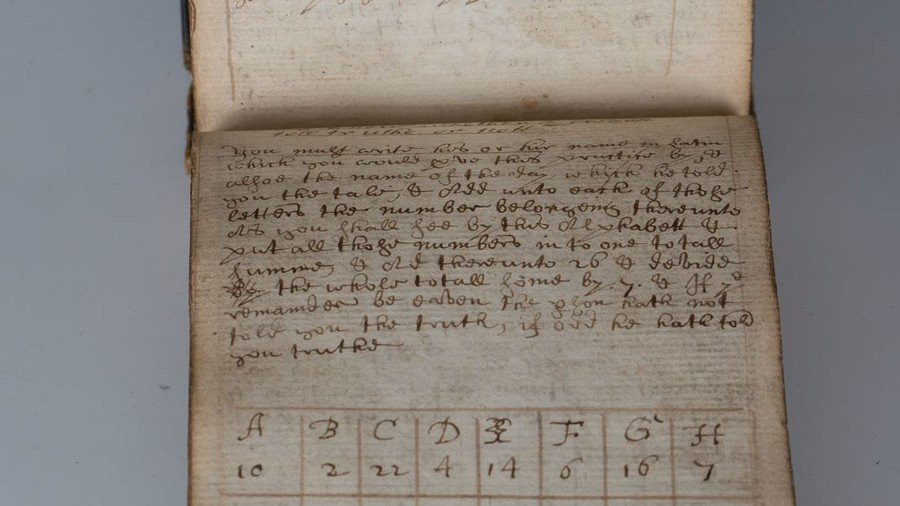 tell truthe or not
You must write his or hir name in Latin
which you would prve this practice by, &
allsoe the name of the day which he told
you the tale, & Add unto each of those
letters the number belongeing thereunto
As you shall see by this Alphabett &
put all those numbers in to one totall
summe, & Ad thereunto 26 & devide
the whole totall some by .7. & If ye
remainder be eaven the pson hath not
told you the truth, if odd he hath told
you truthe
A B C D E F G H
10 2 22 4 14 6 16 7